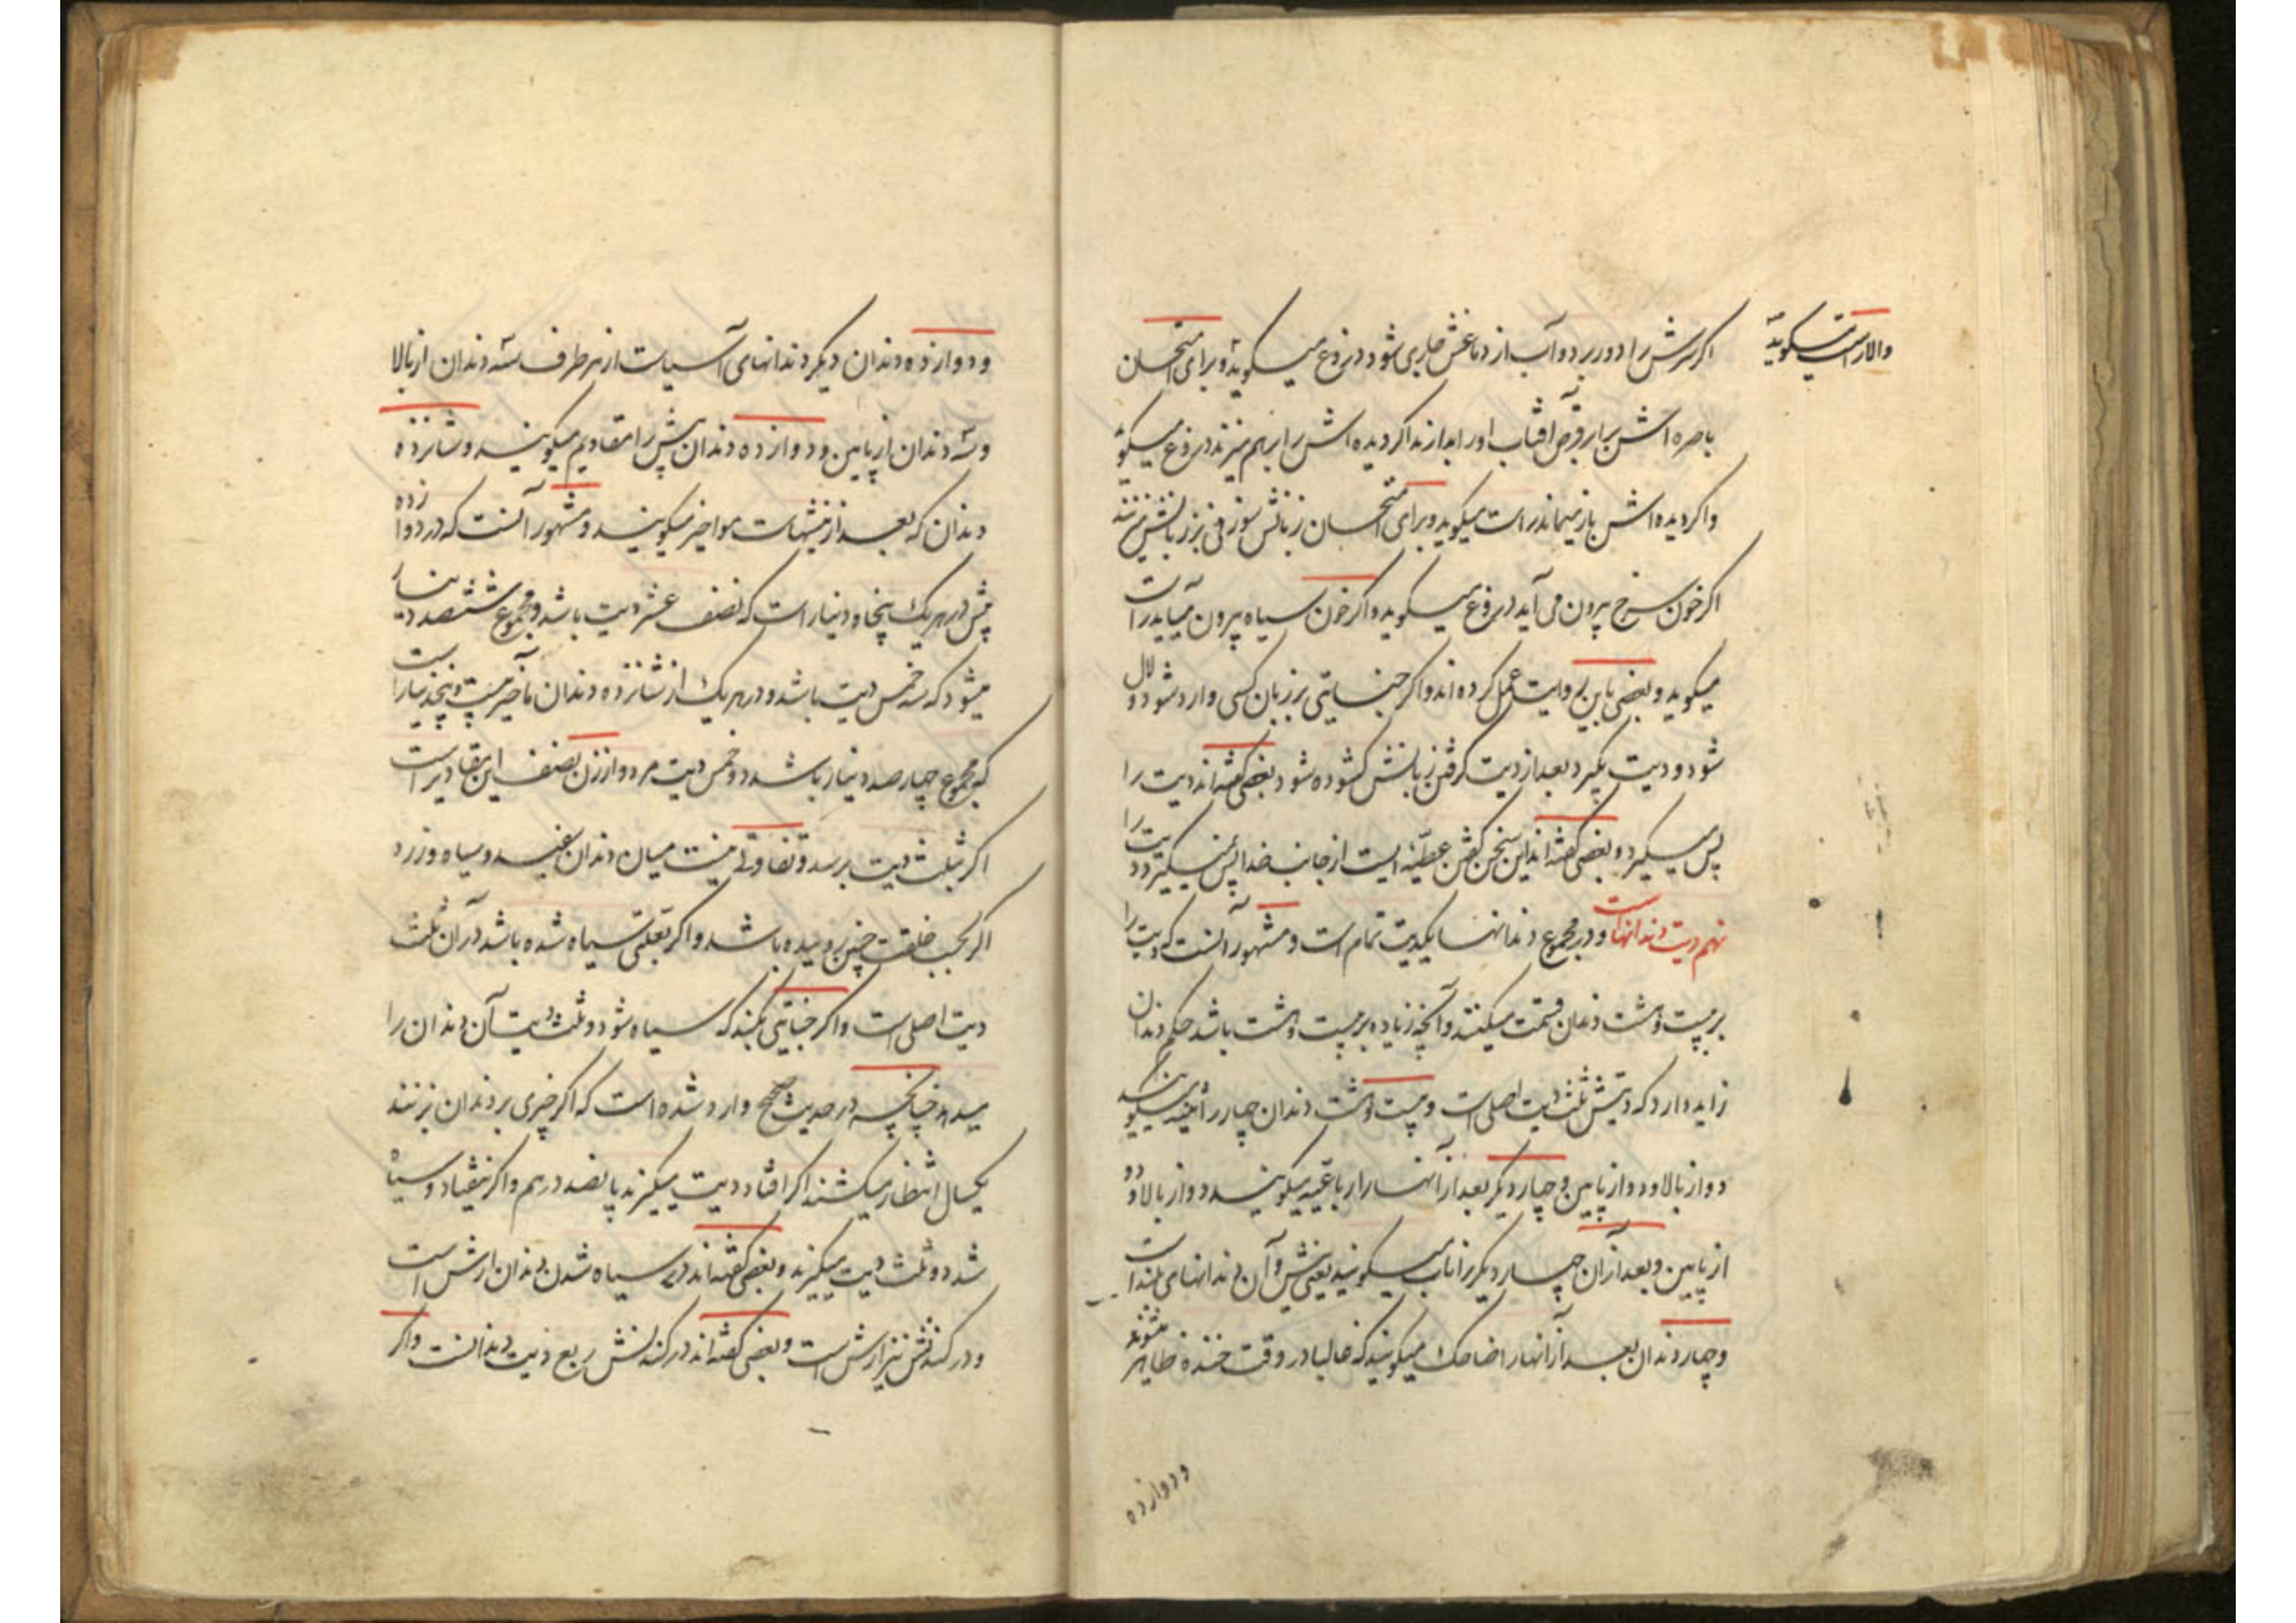 اکر سرش را دور برد و آب از دماغش جاری شود دروغ میکوید و برای امتحان
والا راست میکوید
باصره اش برابر قرص آفتاب او را بدارند اکر دیده اش را بر هم میزند دروغ میکوید
واکر دیده اش باز میماند راست میکوید و برای امتحان زبانش سوزنی بر زبانش میزنند
اکر خون سرخ بیرون می آید دروغ میکوید واکر خون سیاه بیرون میآید راست
میکوید و بعضی باین روایت عمل کرده اند واکر جنایتی بر زبان کسی وارد شود و لال
شود و دیت بکیرد بعد از دیت کرفتن زبانش کشوده شود بعضی کفته اند دیت را
پس میکیرد و بعضی کفته اند این سخن کفتن عطیه ایست از جانب خدا پس نمیکیرد دیت را
نهم دیت دندانهاست و در مجموع دندانها یکدیت تمام است و مشهور آنست که دیت را
بر بیست وهشت دندان قسمت میکنند و آنچه زیاده بر بیست وهشت باشد حکم دندان
زاید دارد که دیتش ثلث دیت اصلی است و بیست وهشت دندان چهار را ثنیه میکویند
دو از بالا و دو از پایین و چهار دیکر بعد از آنها را رباعیه میکویند دو از بالا و دو
از پایین و بعد از آن چهار دیکر را ناب میکویند یعنی نیش و آن دندانهای تند است
و چهار دندان بعد از آنها را ضاحک میکویند که غالبا در وقت خنده ظاهر میشوند
و دوازده
و دوازده دندان دیکر دندانهای آسیاست از هر طرف سه دندان از بالا
و سه دندان از پایین و دوازده دندان پیش را مقادیم میکویند و شانزده
دندان که بعد از نیشهاست مواخیر میکویند و مشهور آنست که در دوازده
پیش در هر یک پنجاه دینار است که نصف عشر دیت باشد و مجموع ششصد دینار
میشود که سه خمس دیت باشد و در هر یک از شانزده دندان مآخیر بیست و پنج دینار است
که مجموع چهار صد دینار باشد دو خمس دیت مرد و از زن نصف این مقادیر است
اکر بثلث دیت برسد و تفاوتی نیست میان دندان سفید و سیاه و زرد
اکر بحسب خلقت چنین روییده باشد و اکر بعلتی سیاه شده باشد در آن ثلث
دیت اصلی است واکر جنایتی بکند که سیاه شود دو ثلث دیت آن دندان را
میدهد چنانچه در حدیث صحیح وارد شده است که اکر چیزی بر دندان بزنند
یکسال انتظار میکشند اکر افتاد دیت میکیرند پانصد درهم واکر نیفتاد و سیاه
شد دو ثلث دیت میکیرند و بعضی کفته اند در سیاه شدن دندان ارش است
و در کندنش نیز ارش است و بعضی کفته اند در کندنش ربع دیت دندانست واکر